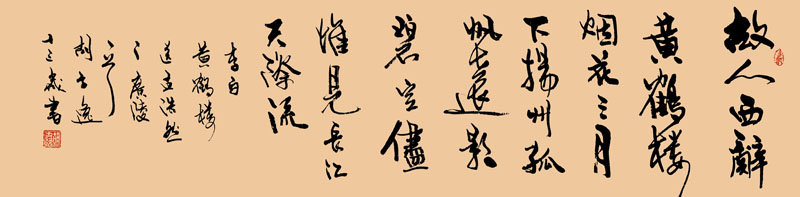 故人西辭
黄鶴楼
烟花三月
下揚州孤
帆遠影
碧空儘
惟見長江
天際流
李白
黄鶴楼
送孟浩然
之廣陵
十三歲書